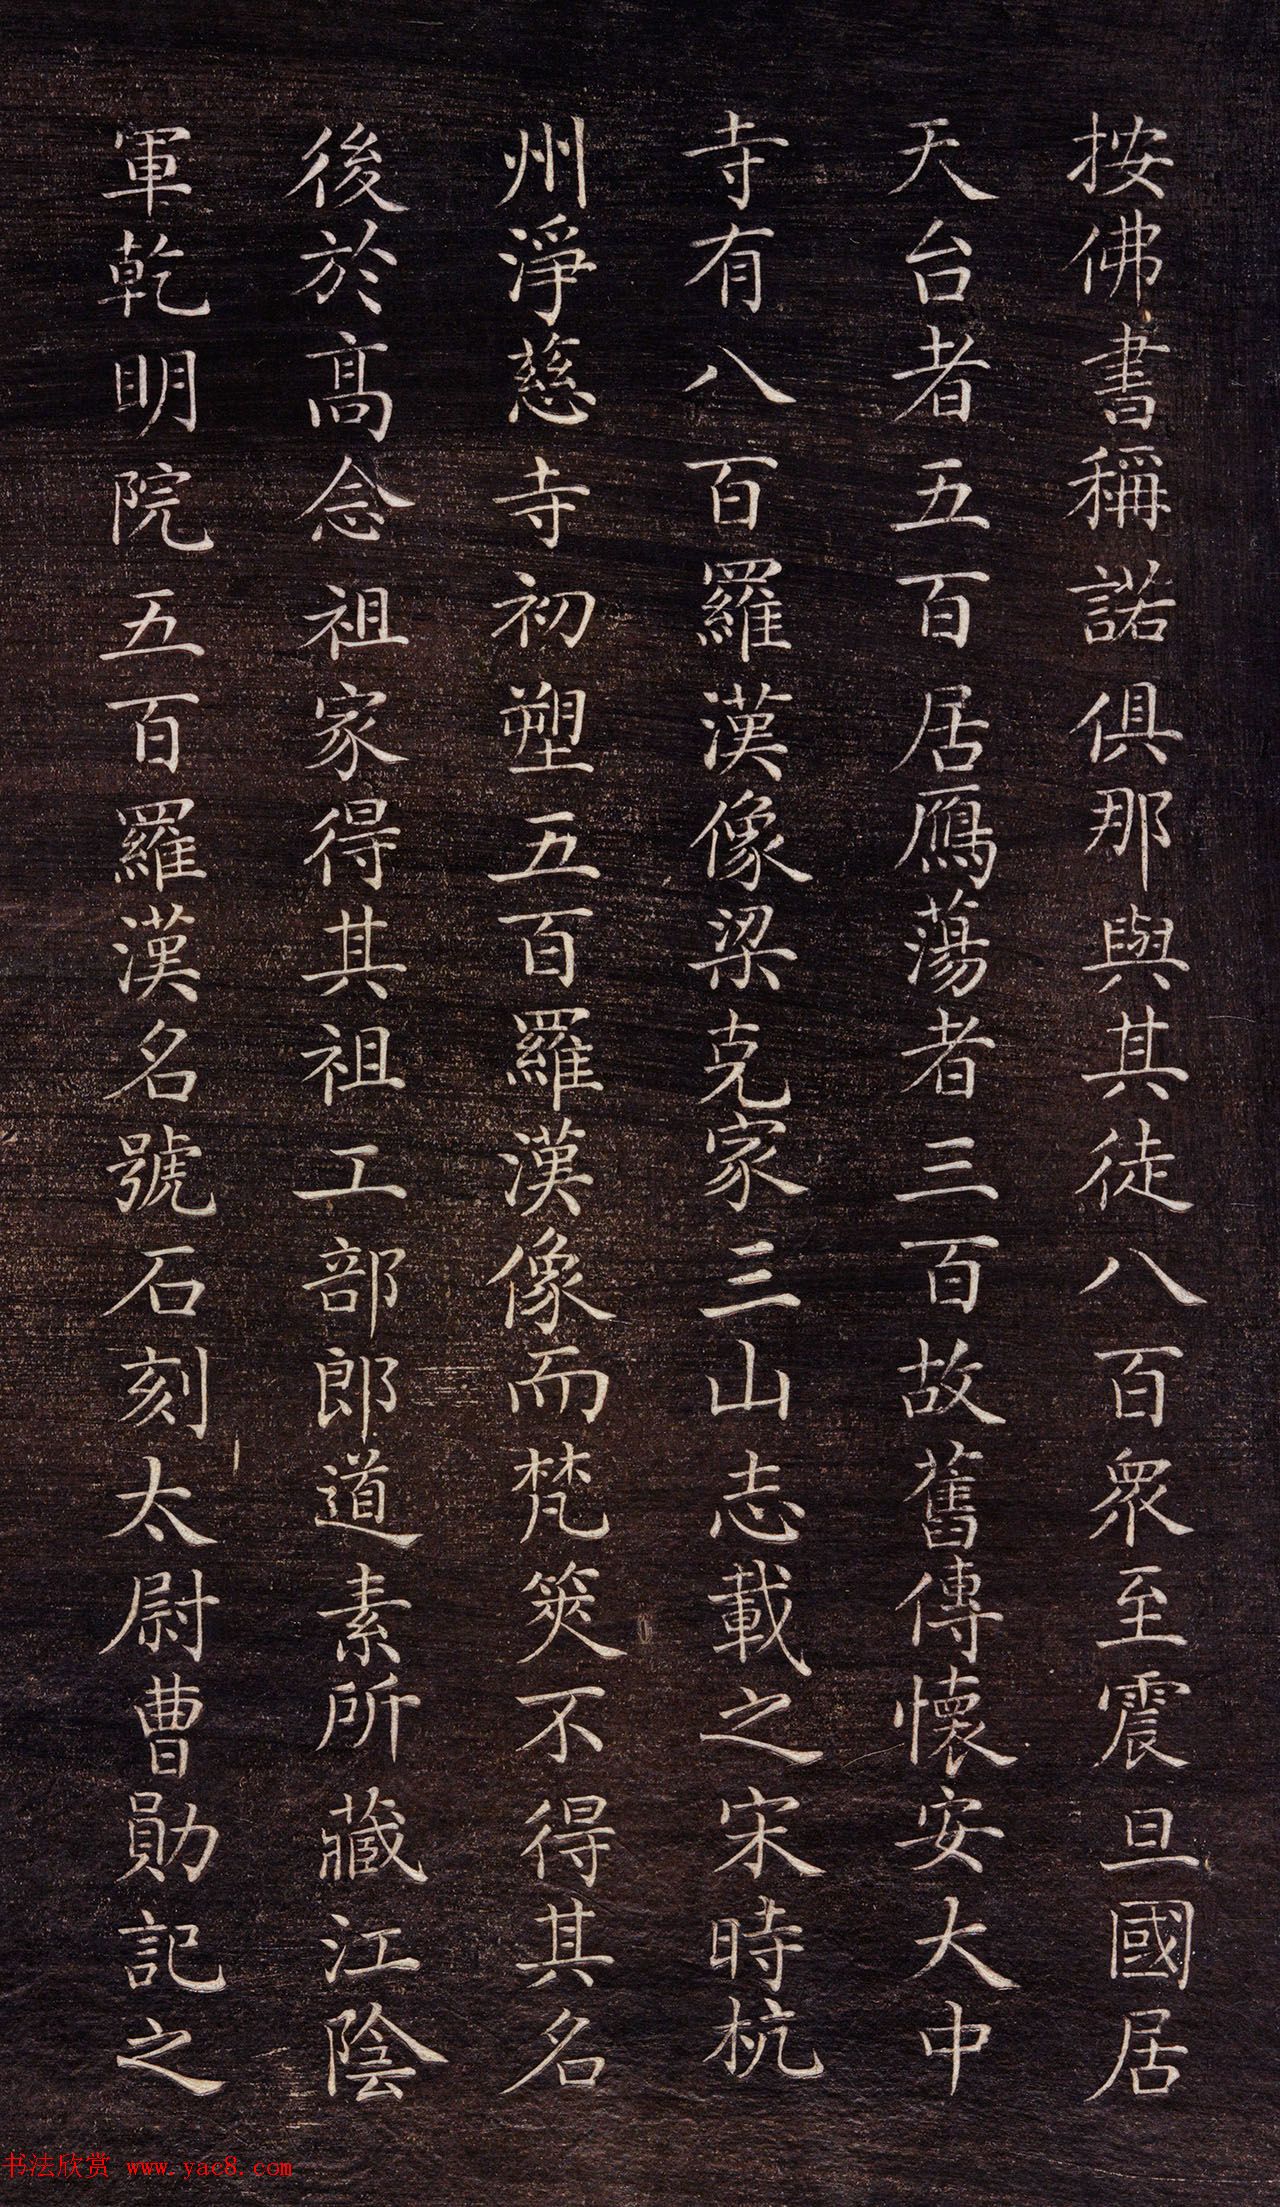 按佛書稱諾俱那與其徒八百眾至震旦國居
天台者五百居鴈蕩者三百故舊傳懷安大中
寺有八百羅漢像梁克家三山志載之宋時杭
州淨慈寺初塑五百羅漢像而梵筴不得其名
後於高念祖家得其祖工部郎道素所藏江陰
軍乾明院五百羅漢名號石刻太尉曹勛記之
书法欣赏 www.yac8.com